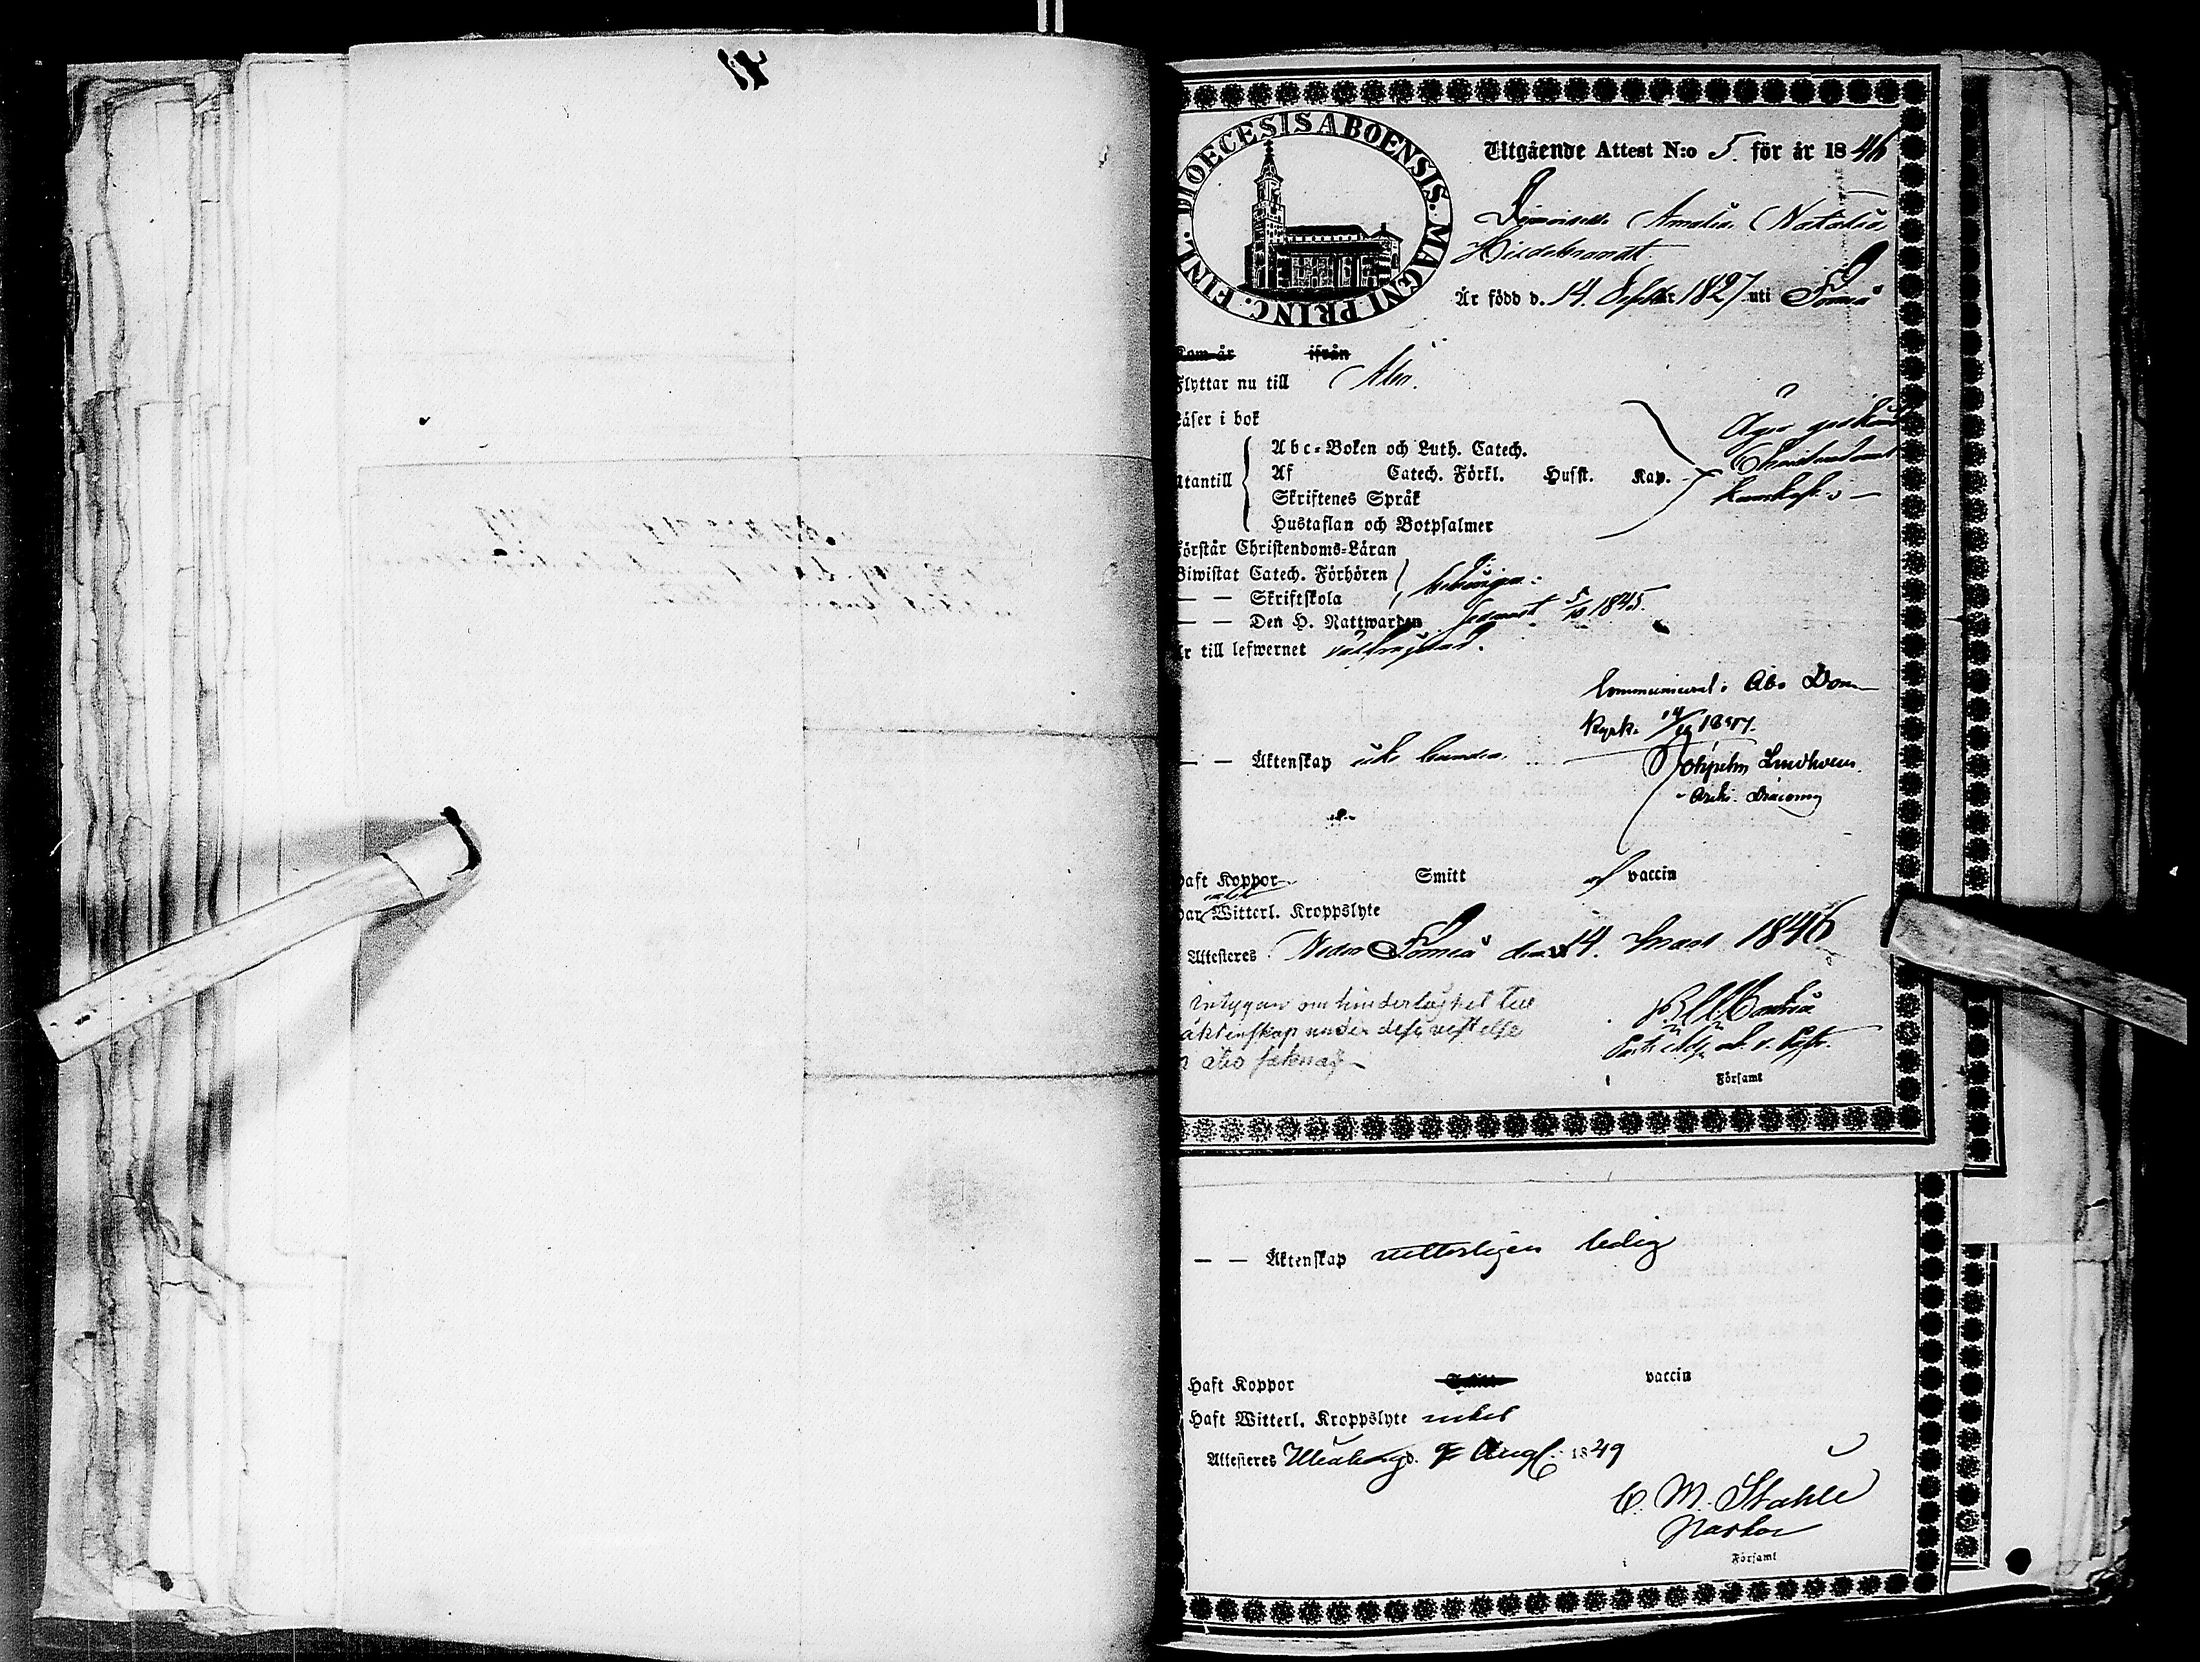 DIOECESIS ABOENSIS. MAGNI PRINC. FINL.
Utgående Attest N:o 5. för år 1846
Demoiselle Amalia Natalia
Hildebrandt
Är född d. 14. Septber 1827 uti Torneå
Kom år ifrån
Flyttar nu till Åbo.
Läser i bok
Abc-Boken och Luth. Catech.
Utantill Af Catech. Förkl. Husst. Kap.
Skriftenes Språk
Hustaflan och Botpsalmer
Äger god
Christendoms
kunskap
Förstår Christendoms-Läran
Biwistat Catech. Förhören
— — Skriftskola
— — Den H. Nattwarden senast 5/10 1845.
Är till lefwernet välfrejdad.
Communicerat i Åbo Dom
kyrk.
— — Äktenskap icke bunden.
Lindholm
Archi. Diaconus
Haft Koppor Smitt af vaccin
Har Witterl. Kroppslyte intet
Attesteres Neder Torneå den 14. Mars 1846
Intygan om hinderlöshet till
äktenskap under dess vistelse
i Åbo saknas
Församl
— — Äktenskap vetterligen ledig
Haft Koppor vaccin
Haft Witterl. Kroppslyte intet
Attesteres Uleåborg d. 9 Aug. 1849
C. M. Stahle
Pastor
Församl